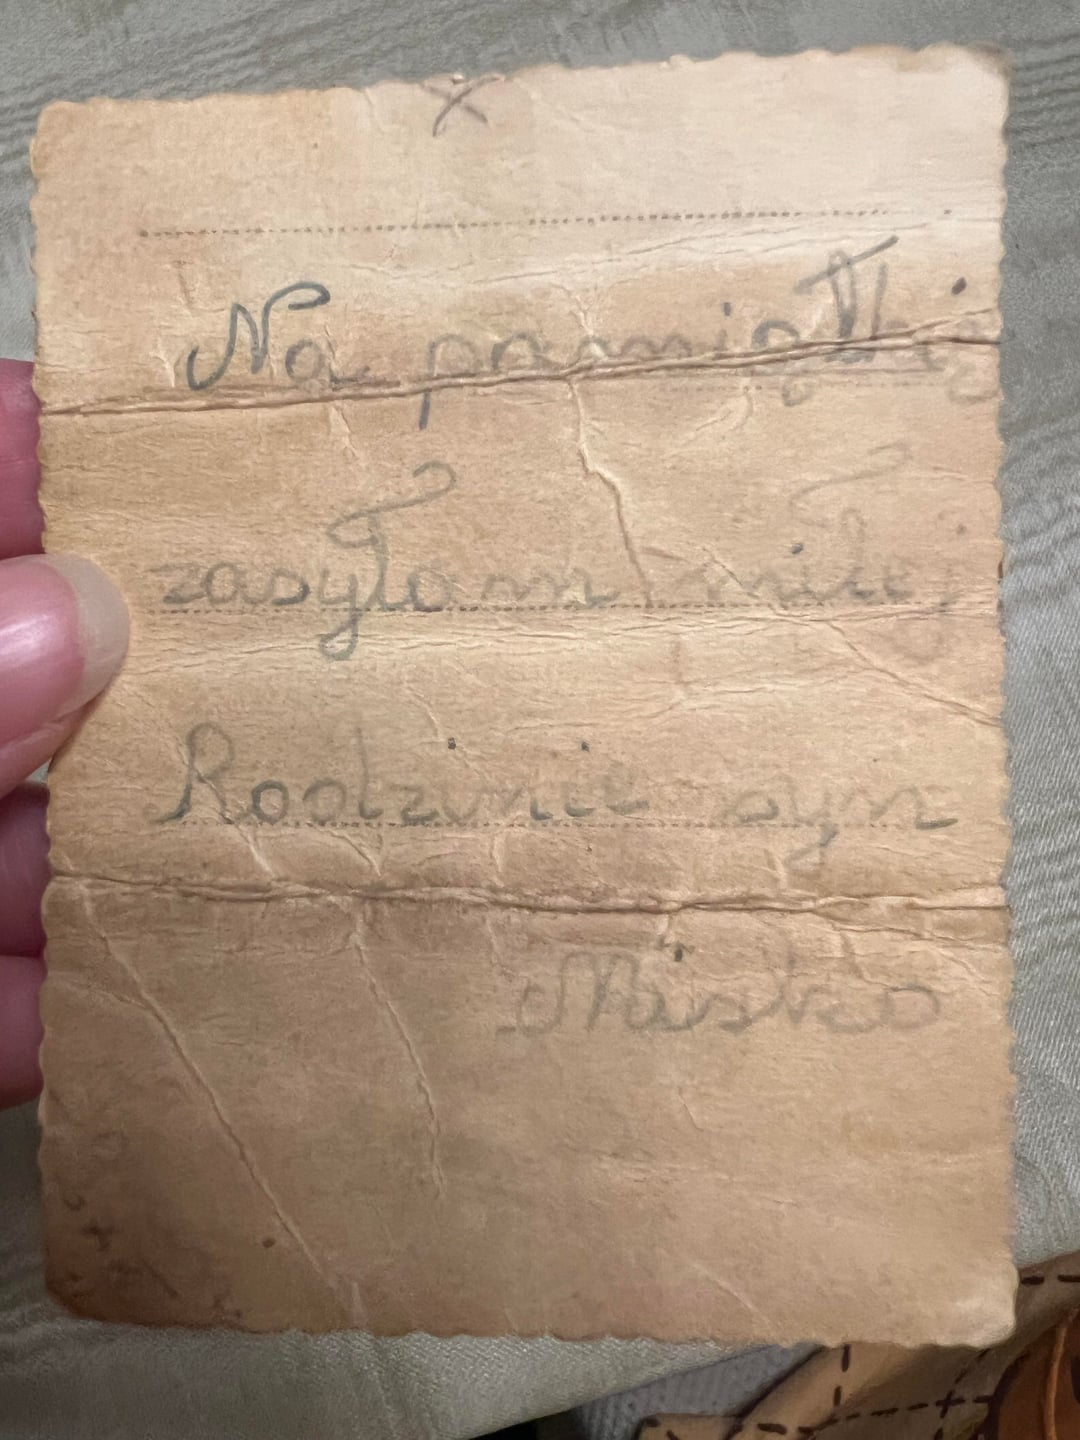 x
Na pamiątkę
zasyłam miłej
Rodzinie syn
Miśko